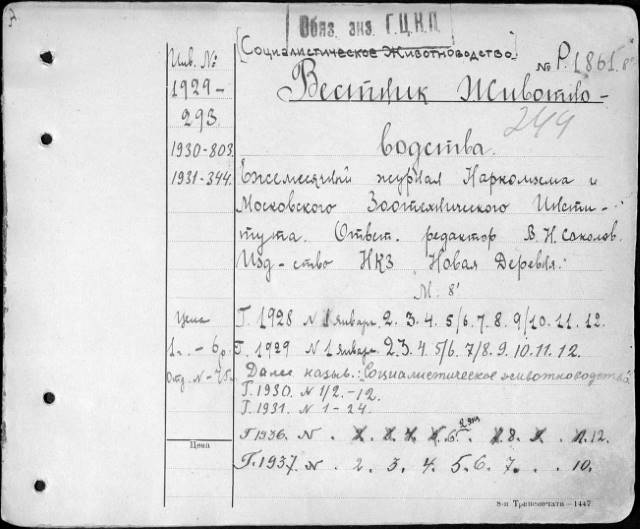 Обяз. экз. Г.Ц.К.П.
[Социалистическое Животноводство]
Инв. № № Р.1861.8°
1929-293. Вестник Животно-
244
1930-803. водства.
1931-344. Ежемесячный журнал Наркомзема и
Московского Зоотехнического Инсти-
тута. Ответ. редактор В.Н. Соколов.
Изд-ство НКЗ Новая Деревня.
М. 8°
Цена Г. 1928 № 1 январь. 2. 3. 4. 5/6. 7. 8. 9/10. 11. 12.
1 г. - 6 р. Г. 1929 № 1 январь 2. 3. 4. 5/6. 7/8. 9. 10. 11. 12.
Отд. № - 75 Далее назыв.: Социалистическое животноводство
Г. 1930. № 1/2. - 12.
Г. 1931. № 1 - 24.
Г 1936. № 6. 8. 12.
Цена
Г. 1937. № . 2. 3. 4. 5. 6. 7. . . 10.
8-я Транспечати - 1447